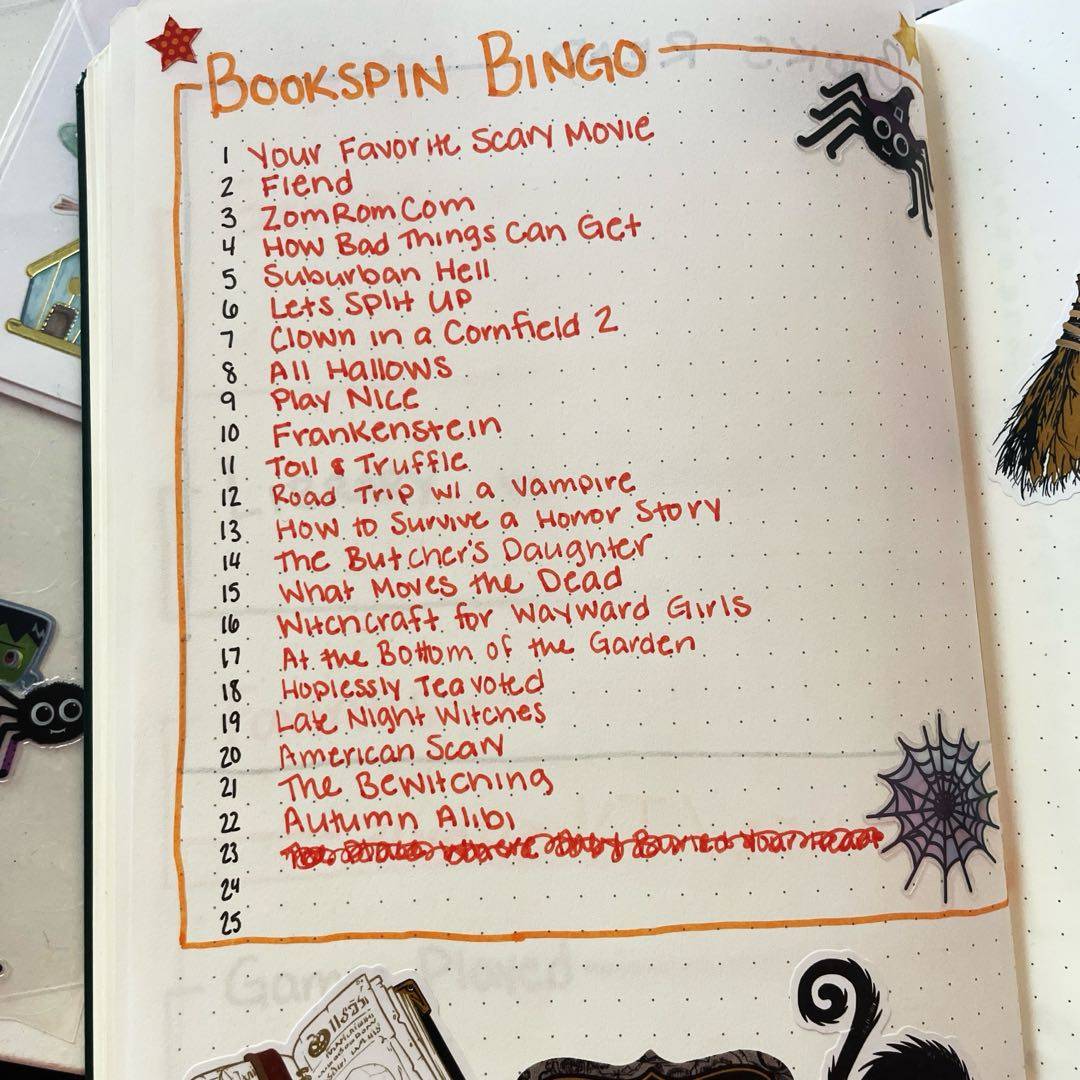 BOOKSPIN BINGO
1 Your Favorite Scary Movie
2 Fiend
3 ZomRomCom
4 How Bad Things Can Get
5 Suburban Hell
6 Lets Split Up
7 Clown in a Cornfield 2
8 All Hallows
9 Play Nice
10 Frankenstein
11 Toil & Truffle
12 Road Trip w/ a Vampire
13 How to Survive a Horror Story
14 The Butcher's Daughter
15 What Moves the Dead
16 Witchcraft for Wayward Girls
17 At the Bottom of the Garden
18 Hoplessly Teavoted
19 Late Night Witches
20 American Scary
21 The Bewitching
22 Autumn Alibi
23
24
25